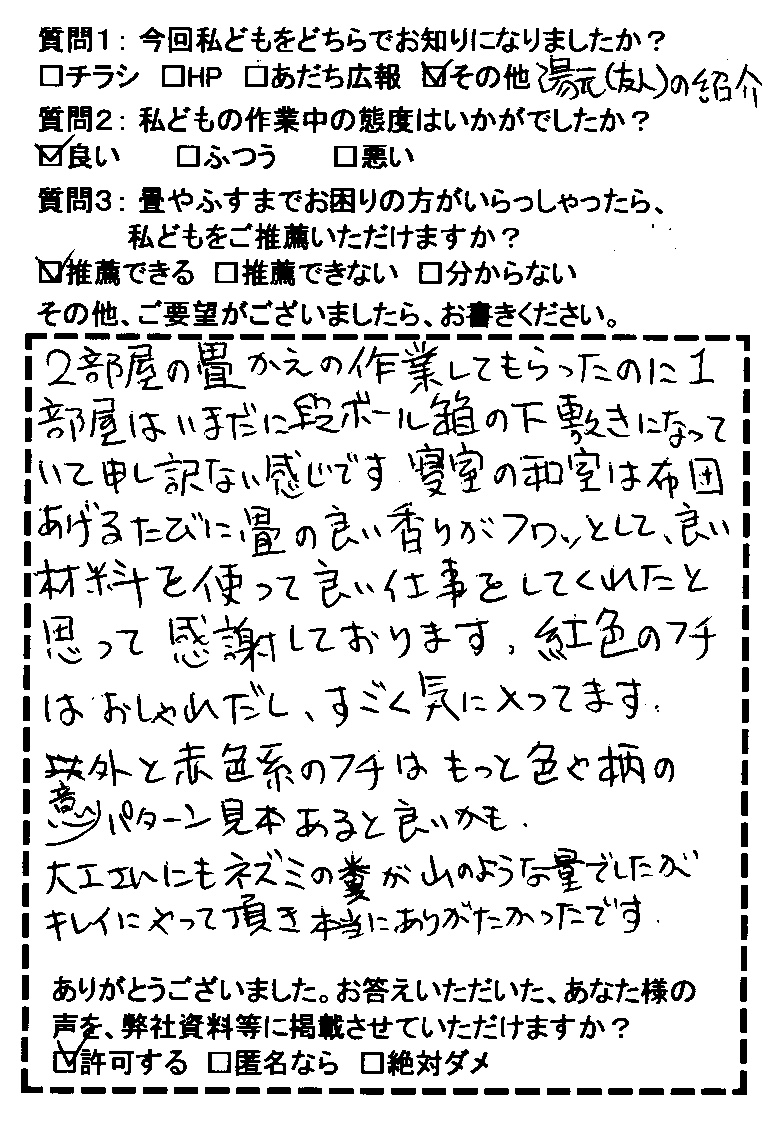 質問1：今回私どもをどちらでお知りになりましたか？
□チラシ □HP □あだち広報 ☑その他 湯元(友人)の紹介
質問2：私どもの作業中の態度はいかがでしたか？
☑良い □ふつう □悪い
質問3：畳やふすまでお困りの方がいらっしゃったら、
私どもをご推薦いただけますか？
☑推薦できる □推薦できない □分からない
その他、ご要望がございましたら、お書きください。
2部屋の畳かえの作業してもらったのに1
部屋はいまだに段ボール箱の下敷きになって
いて申し訳ない感じです 寝室の和室は布団
あげるたびに畳の良い香りがフワッとして、良い
材料を使って良い仕事をしてくれたと
思って感謝しております。紅色のフチ
はおしゃれだし、すごく気に入ってます.
意外と赤色系のフチはもっと色や柄の
パターン見本あると良いかも.
大工さんにもネズミの糞が山のような量でしたが
キレイにやって頂き本当にありがたかったです.
ありがとうございました。お答えいただいた、あなた様の
声を、弊社資料等に掲載させていただけますか？
☑許可する □匿名なら □絶対ダメ